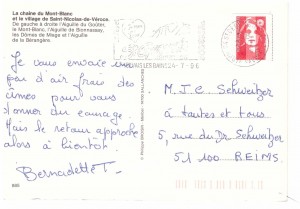 La chaîne du Mont-Blanc
et le village de Saint-Nicolas-de-Véroce.
De gauche à droite l'Aiguille du Goûter,
le Mont-Blanc, l'Aiguille de Bionnassay,
les Dômes de Miage et l'Aiguille
de la Bérangère.
Je vous envoie un
peu d'air frais des
cimes pour vous
donner du courage.
Mais le retour approche
alors à bientôt.
Bernadette T.
M.J.C. Schweitzer
à toutes et tous
5, rue du Dr Schweitzer
51 100 REIMS.